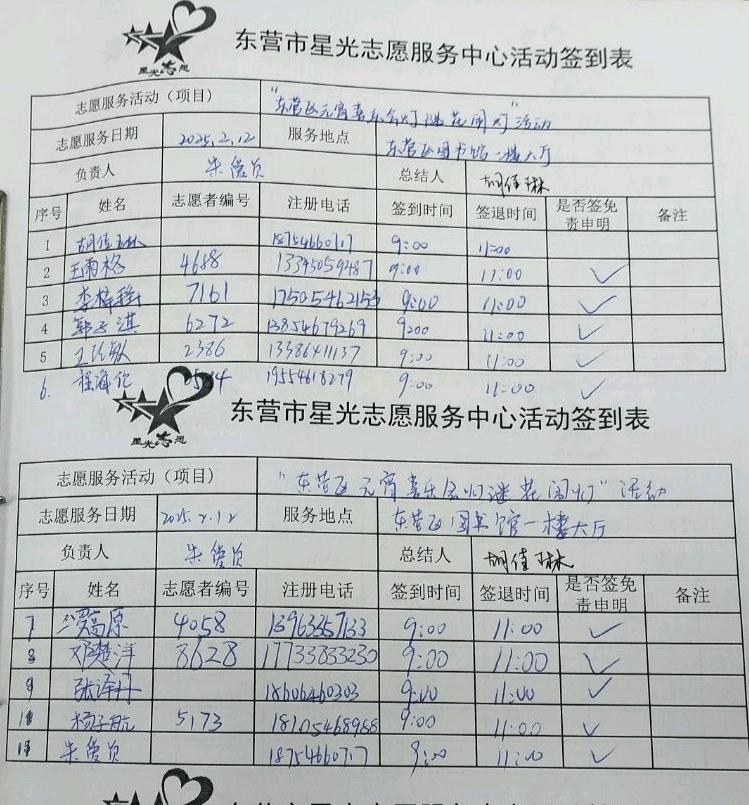 星光志愿
东营市星光志愿服务中心活动签到表
志愿服务活动（项目） "东营区元宵喜乐会灯谜花闹灯"活动
志愿服务日期 2025.2.12 服务地点 东营区图书馆一楼大厅
负责人 总结人 胡佳琳
序号 姓名 志愿者编号 注册电话 签到时间 签退时间 是否签免责申明 备注
1 胡佳琳 18754660717 9:00 11:00
2 王雨格 4688 13345059487 9:00 11:00 ✓
3 7161 17505462153 9:00 11:00 ✓
4 郭子淇 6272 13854679269 9:00 11:00 ✓
5 2386 13386411137 9:00 11:00 ✓
6. 程海伦 19554618279 9:00 11:00 ✓
星光志愿
东营市星光志愿服务中心活动签到表
志愿服务活动（项目） "东营区元宵喜乐会灯谜花闹灯"活动
志愿服务日期 2025.2.12 服务地点 东营区图书馆一楼大厅
负责人 总结人 胡佳琳
序号 姓名 志愿者编号 注册电话 签到时间 签退时间 是否签免责申明 备注
7 高原 4058 13963357133 9:00 11:00 ✓
8 邓楚洋 8628 17733833230 9:00 11:00 ✓
9 18606460303 9:00 11:00 ✓
10 杨子航 5173 18105468988 9:00 11:00 ✓
11 18754660717 9:00 11:00 ✓
东营市星光志愿服务中心活动签到表